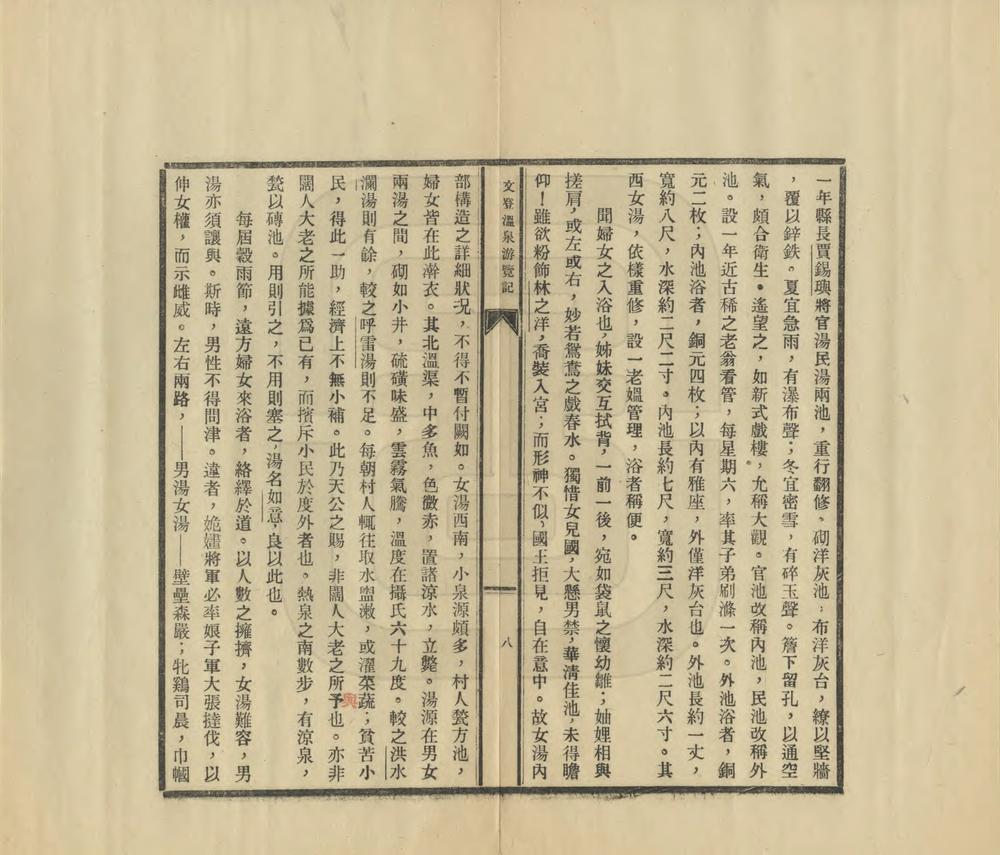 一年縣長賈錫璵將官湯民湯兩池，重行翻修。砌洋灰池，布洋灰台，繚以堅牆
，覆以鋅鉄。夏宜急雨，有瀑布聲；冬宜密雪，有碎玉聲。簷下留孔，以通空
氣，頗合衛生。遙望之，如新式戲樓，允稱大觀。官池改稱內池，民池改稱外
池。設一年近古稀之老翁看管，每星期六，率其子弟刷滌一次。外池浴者，銅
元二枚；內池浴者，銅元四枚；以內有雅座，外僅洋灰台也。外池長約一丈，
寬約八尺，水深約二尺二寸。內池長約七尺，寬約三尺，水深約二尺六寸。其
西女湯，依樣重修，設一老媼管理，浴者稱便。
聞婦女之入浴也，姊妹交互拭背，一前一後，宛如袋鼠之懷幼雛；妯娌相與
搓肩，或左或右，妙若鴛鴦之戲春水。獨惜女兒國，大懸男禁，華清佳池，未得瞻
仰！雖欲粉飾林之洋，喬裝入宮；而形神不似，國王拒見，自在意中。故女湯內
文登溫泉游覽記
八
部構造之詳細狀況，不得不暫付闕如。女湯西南，小泉源頗多，村人甃方池，
婦女皆在此澣衣。其北溫渠，中多魚，色微赤，置諸涼水，立斃。湯源在男女
兩湯之間，砌如小井，硫磺味盛，雲霧氣騰，溫度在攝氏六十九度。較之洪水
瀾湯則有餘，較之呼雷湯則不足。每朝村人輒往取水盥漱，或濯菜蔬；貧苦小
民，得此一助，經濟上不無小補。此乃天公之賜，非闊人大老之所予也。亦非
與
闊人大老之所能據爲已有，而擯斥小民於度外者也。熱泉之南數步，有涼泉，
甃以磚池。用則引之，不用則塞之，湯名如意，良以此也。
每屆穀雨節，遠方婦女來浴者，絡繹於道。以人數之擁擠，女湯難容，男
湯亦須讓與。斯時，男性不得問津。違者，娩嫿將軍必率娘子軍大張撻伐，以
伸女權，而示雌威。左右兩路，——男湯女湯——壁壘森嚴；牝鷄司晨，巾幗